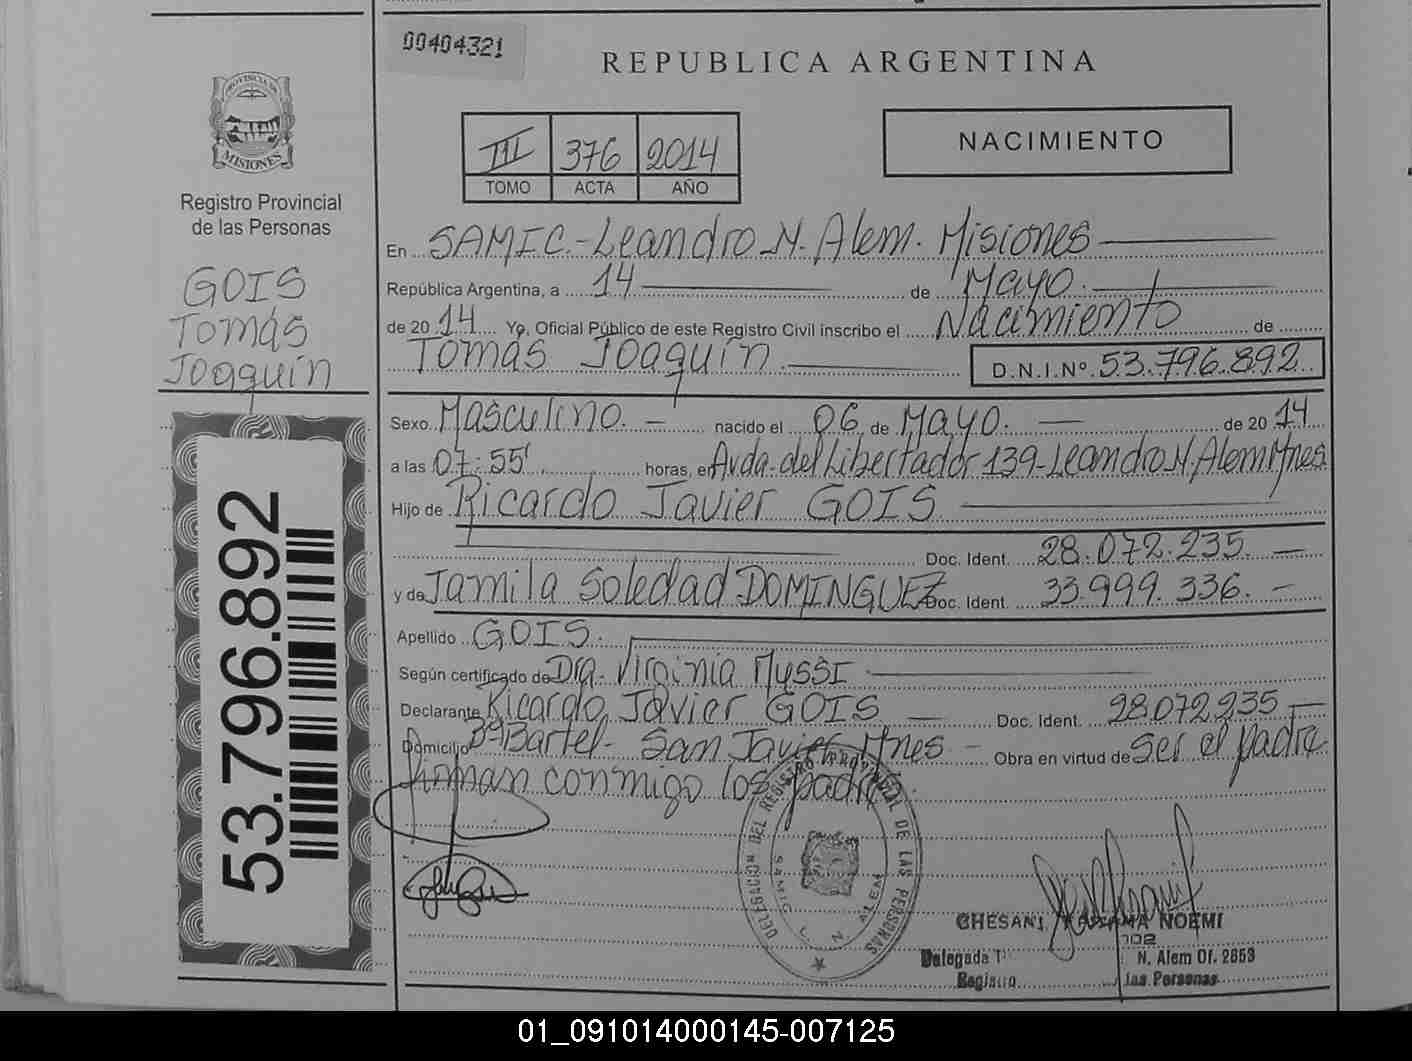 00404321
REPUBLICA ARGENTINA
PROVINCIA DE
MISIONES
Registro Provincial
de las Personas
GOIS
Tomás
Joaquín
53.796.892
III 376 2014
TOMO ACTA AÑO
NACIMIENTO
En SAMIC.-Leandro N. Alem. Misiones
República Argentina, a 14 de Mayo.
de 2014 Yo, Oficial Público de este Registro Civil inscribo el Nacimiento de
Tomás Joaquín D.N.I.Nº.53.796.892.
Sexo Masculino. nacido el 06 de Mayo. de 2014
a las 07:55' horas, en Avda. del Libertador 139-Leandro N. Alem Mnes.
Hijo de Ricardo Javier GOIS
Doc. Ident. 28.072.235.
y de Jamila Soledad DOMINGUEZ Doc. Ident. 33.999.336.
Apellido GOIS.
Según certificado de Dra. Virginia Myssi
Declarante Ricardo Javier GOIS Doc. Ident. 28.072.235
Domicilio Bº Bartel- San Javier Mnes Obra en virtud de Ser el padre.
firman conmigo los padres
DELEGACION DEL REGISTRO PROVINCIAL DE LAS PERSONAS
SAMIC L. N. ALEM
CHESANI, NOEMI
702
Delegada N. Alem Of. 2653
Registro las Personas
01_091014000145-007125